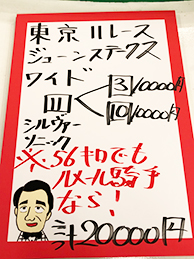 東京11レース
ジューンステークス
ワイド
11 < 3 10000円
10 10000円
シルヴァー
ソニック
※56キロでも
ルメール騎手
なら!
計20000円